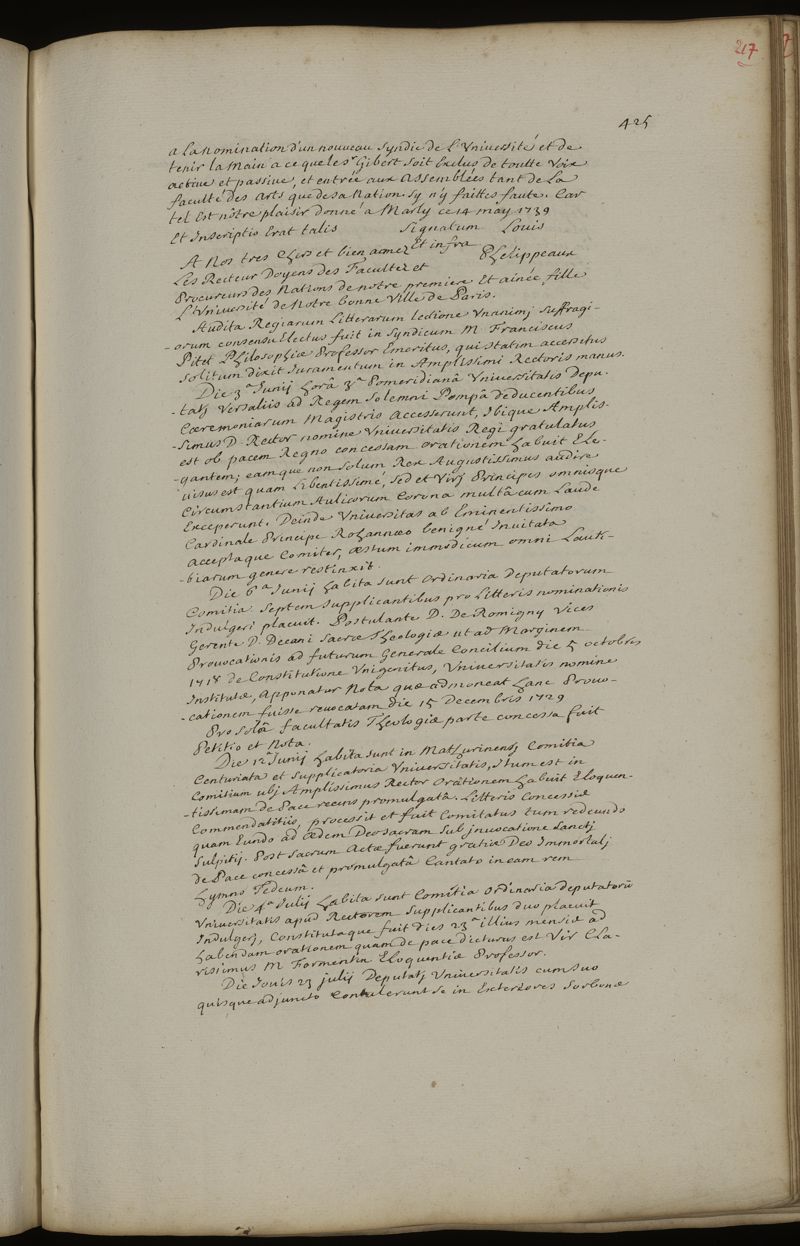 217
425
a la nomination d'un nouveau Syndic de L'Université et de
tenir la Main a ce que le Sr Gibert soit Exclus de toutte Voix
active et passive, et entrée aux Assemblées tant de La
faculté des Arts que de sa Nation. Sy n'y faittes faute. Car
tel Est nôtre plaisir donné a Marly ce 14 may 1739
Et Inscriptio Erat talis Signatum Louis
A Nos tres chers et bien amez Et infra Phelippeaux
Les Recteur Doyens des Facultez et
Procureurs des Nations de notre premiere Et ainée fille
L'Université de Notre bonne Ville de Paris.
Audita Regiarum Litterarum lectione Vnanimj Suffragi-
-orum consensu Electus fuit in Syndicum M Franciscus
Pitet Philosophiæ Professor Emeritus, qui statim accersitus
solitum dixit Juramentum in Amplissimi Rectoris manus.
Die 3a Junij horâ 3a Pomeridianâ Vniversitatis Depu-
-tatj Versaliis ad Regem Solemni Pompâ deducentibus
Cæremoniarum Magistris Accesserunt, Ibique Amplis-
-simus D. Rector nomine Vniversitatis Regi gratulatus
est ob pacem Regno concessam Orationem habuit Ele-
-gantem; eamque non solum Rex Augustissimus audire
visus est quam Libentissimé, sed et Virj Principes omnisque
Circumstantium Aulicorum Corona multâ cum Laude
Exceperunt. Deinde Vniversitas ab Eminentissimo
Cardinale Principe Rohannæo benigné Invitata
acceptaque Comiter, æstum immodicum omni Lauti-
-tiarum genere restinxit.
Die 6a Junij habita sunt Ordinaria Deputatorum
Comitia. Septem supplicantibus pro Litteris nominationis
Indulgeri placuit. Postulante D. De Romigny Vices
Gerente D. Decani Sacræ Theologiæ ut ad Marginem
Provocationis ad futurum Generale Concilium die 5 octobris
1718 de Constitutione Vnigenitus, Vniversitatis nomine
Institutæ, Apponatur Nota quæ admoneat hanc Provo-
-cationem fuisse revocatam die 15 Decembris 1729
Pro Solâ facultatis Theologiæ parte concessa fuit
Petitio et Nota.
Die 12a Junij habita sunt in Mathurinensj Comitia
Centuriata et Supplicatoria Vniversitatis, Itum est in
Comitium ubj Amplissimus Rector Orationem habuit Eloquen-
-tissimam de Pace recens promulgatâ. Litteris Concessis
Commendatitiis, processit et fuit Comitatus tum redeundo
quam Eundo ad ædem Deo sacram Sub jnvocatione Sanctj
Sulpitij. Post Sacrum Actæ fuerunt gratiæ Deo Immortalj
de Pace concessâ et promulgatâ Cantato in eam rem
hymno Tedeum.
Die 4a Julij habita sunt Comitia Ordinaria deputatorū
Vniversitatis apud Rectorem Supplicantibus duo placuit
Indulgerj, Constitutaque fuit dies 23a illius mensis ad
habendam orationem quam de pace dicturus est Vir Cla-
rissimus M Formentin Eloquentiæ Professor.
Die Jovis 23 julij Deputatj Vniversitatis cum suo
quisque adjuncto Contulerunt se in Exteriores Sorbonæ